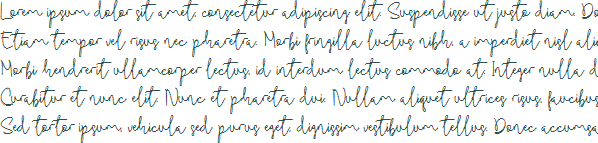 Lorem ipsum dolor sit amet, consectetur adipiscing elit. Suspendisse ut justo diam. Do
Etiam tempor vel risus nec pharetra. Morbi fringilla luctus nibh, a imperdiet nisl ali
Morbi hendrerit ullamcorper lectus, id interdum lectus commodo at. Integer nulla d
Curabitur et nunc elit. Nunc et pharetra dui. Nullam aliquet ultrices risus, faucibus
Sed tortor ipsum, vehicula sed purus eget, dignissim vestibulum tellus. Donec accumsa